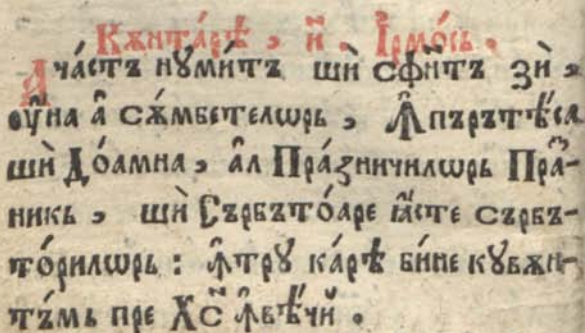 Кѫнта́рѣ , и҆̀ . І҆рмо́сь .
Ача́стъ нꙋми́тъ шѝ сфи́нтъ ꙁѝ ,
ѹ҆́на а҆̀ сѫ́мбетелѡрь , ꙟ҆̀пъръте́са
шѝ До́амна , а҆̀л Пра́ꙁничилѡрь Пра́ꙁ-
никь , шѝ Сърбъто́аре ꙗ҆́сте сърбъ-
то́рилѡрь : ꙟ҆́трꙋ ка́рѣ би́не кꙋвѫн-
тъ́мь пре Хс҃ ꙟ҆̀вѣ́чй .